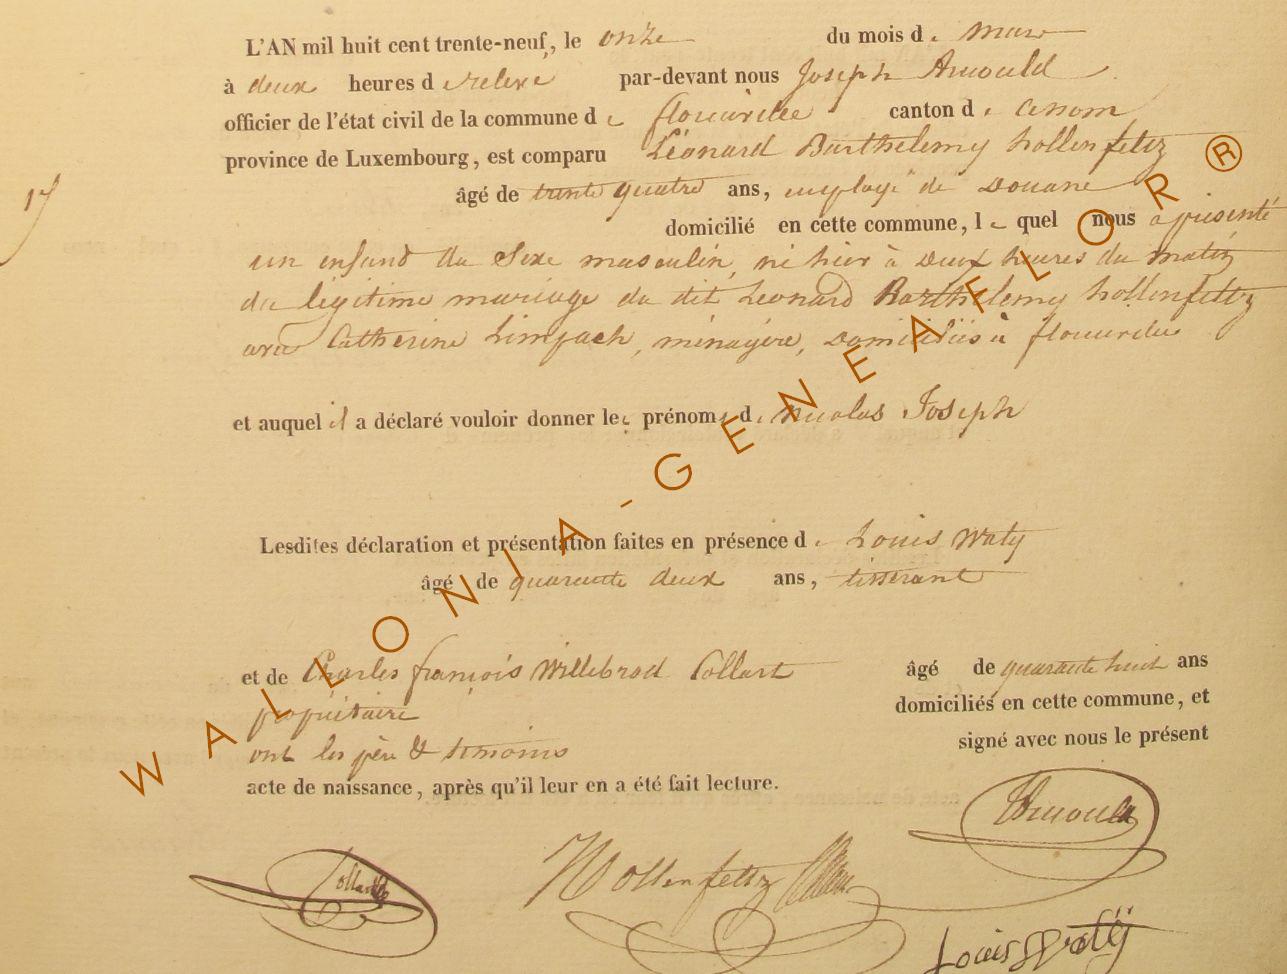 L'AN mil huit cent trente-neuf, le onze du mois de mars
à deux heures de relevé par-devant nous Joseph Arnould
officier de l'état civil de la commune de canton de
province de Luxembourg, est comparu Léonard Barthelemy hollenfeltz
âgé de trente quatre ans, employé de Douane
domicilié en cette commune, le quel nous a présenté
17
un enfant du Sexe masculin, né hier à Deux heures du matin
du légitime mariage du dit Léonard Barthelemy hollenfeltz
avec Catherine Limpach, ménagère, Domiciliés à
et auquel il a déclaré vouloir donner les prénoms de Nicolas Joseph
Lesdites déclaration et présentation faites en présence de Louis Waty
âgé de quarante deux ans, tisserant
et de Charles françois Willebrod Collart âgé de quarante huit ans
propriétaire domiciliés en cette commune, et
ont les père & témoins signé avec nous le présent
acte de naissance, après qu'il leur en a été fait lecture.
Arnould
Collart Hollenfeltz
Louis Watÿ
WALLONIA-GENEAFLOR ®